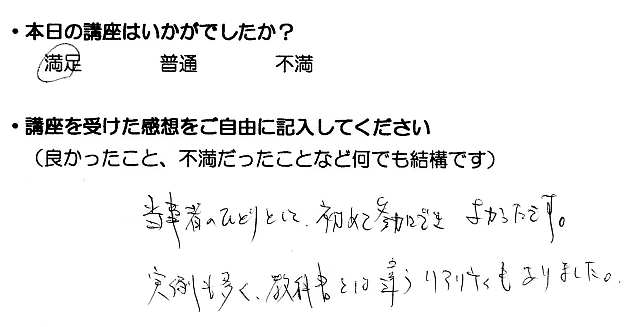 ・本日の講座はいかがでしたか？
満足 普通 不満
・講座を受けた感想をご自由に記入してください
（良かったこと、不満だったことなど何でも結構です）
当事者のひとりとして、初めて参加でき よかったです。
実例も多く、教科書とは違うリアリティもありました。